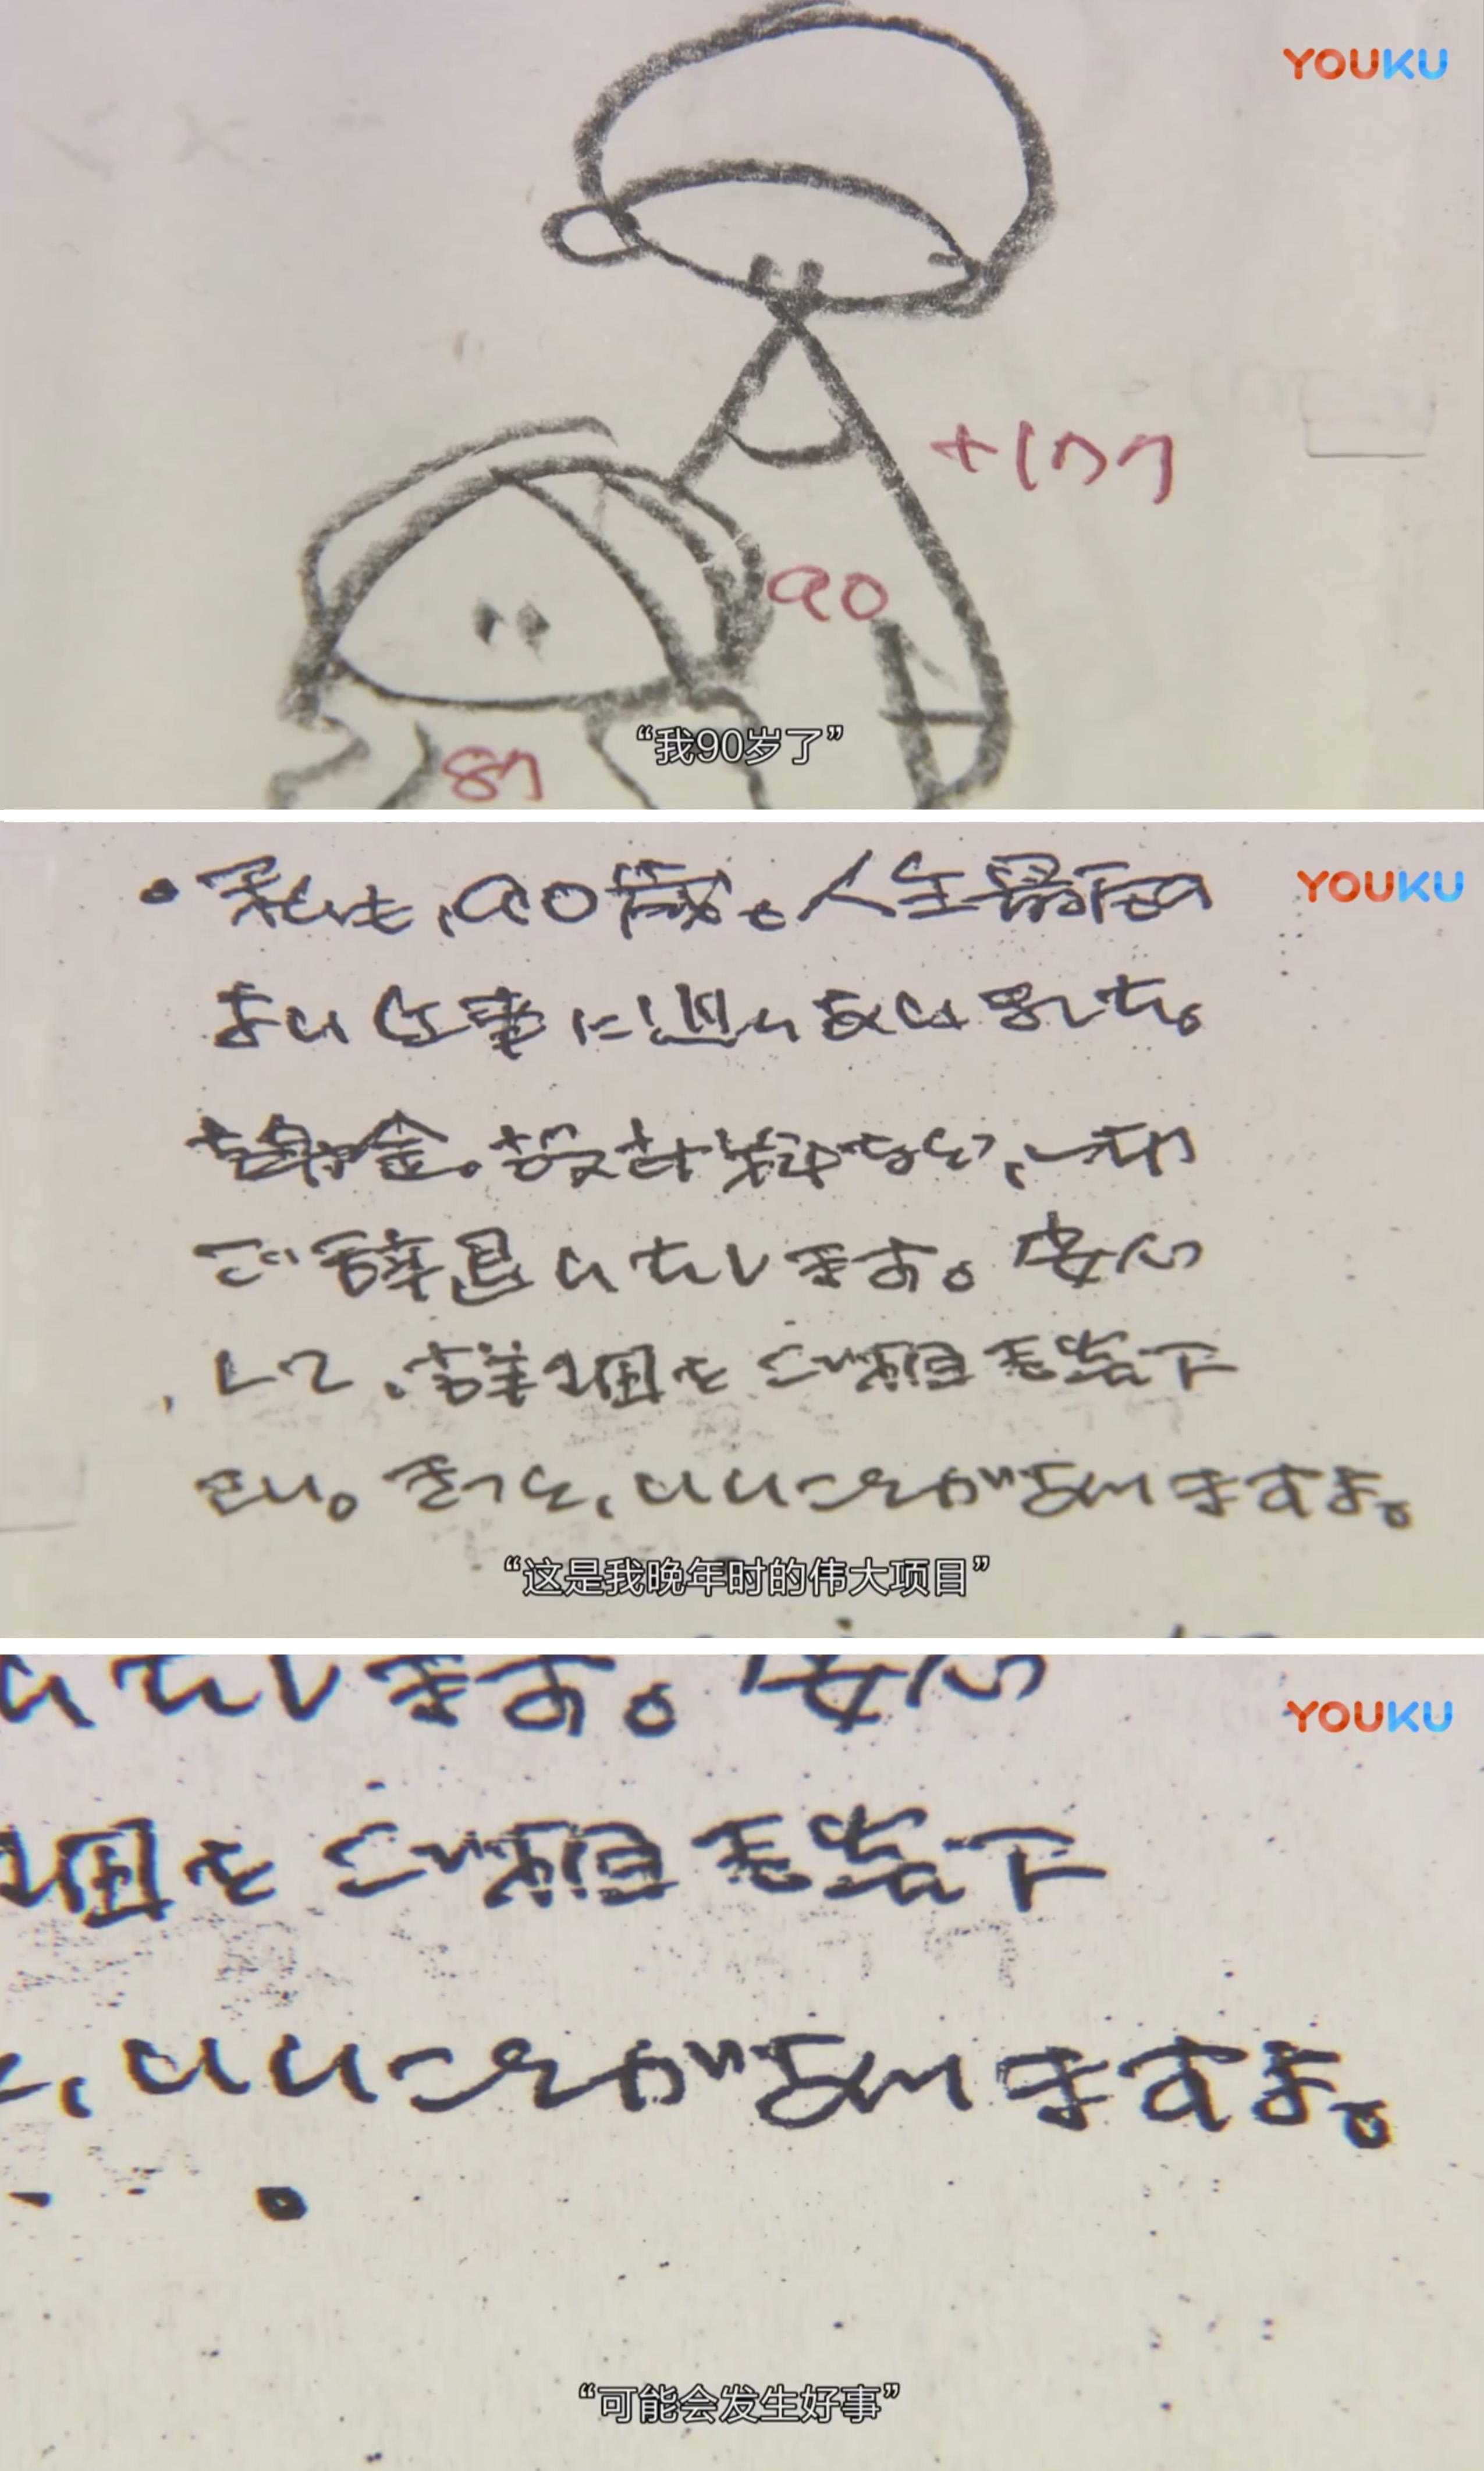 YOUKU
+177
90
87
“我90岁了”
YOUKU
・私も、90歳。人生最后の
よい仕事に巡りあいました。
謝金。設計料など、一切
ご辞退いたします。安心
して、詳細をご放念下
さい。きっと、いいことがありますよ。
“这是我晚年时的伟大项目”
いたします。安心
細を
下
、いいことがありますよ。
YOUKU
“可能会发生好事”